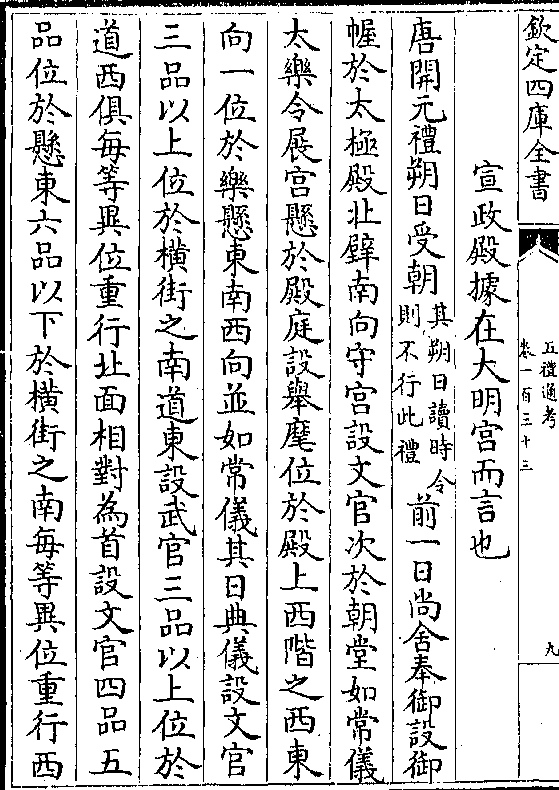 欽定四庫全書
五禮通考
卷一百三十三
九
宣政殿據在大明宫而言也
唐開元禮朔日受朝其朔日讀時令則不行此禮前一日尚舍奉御設御
幄於太極殿北壁南向守宫設文官次於朝堂如常儀
太樂令展宫懸於殿庭設舉麾位於殿上西階之西東
向一位於樂懸東南西向並如常儀其日典儀設文官
三品以上位於横街之南道東設武官三品以上位於
道西俱每等異位重行北面相對為首設文官四品五
品位於懸東六品以下於横街之南每等異位重行西